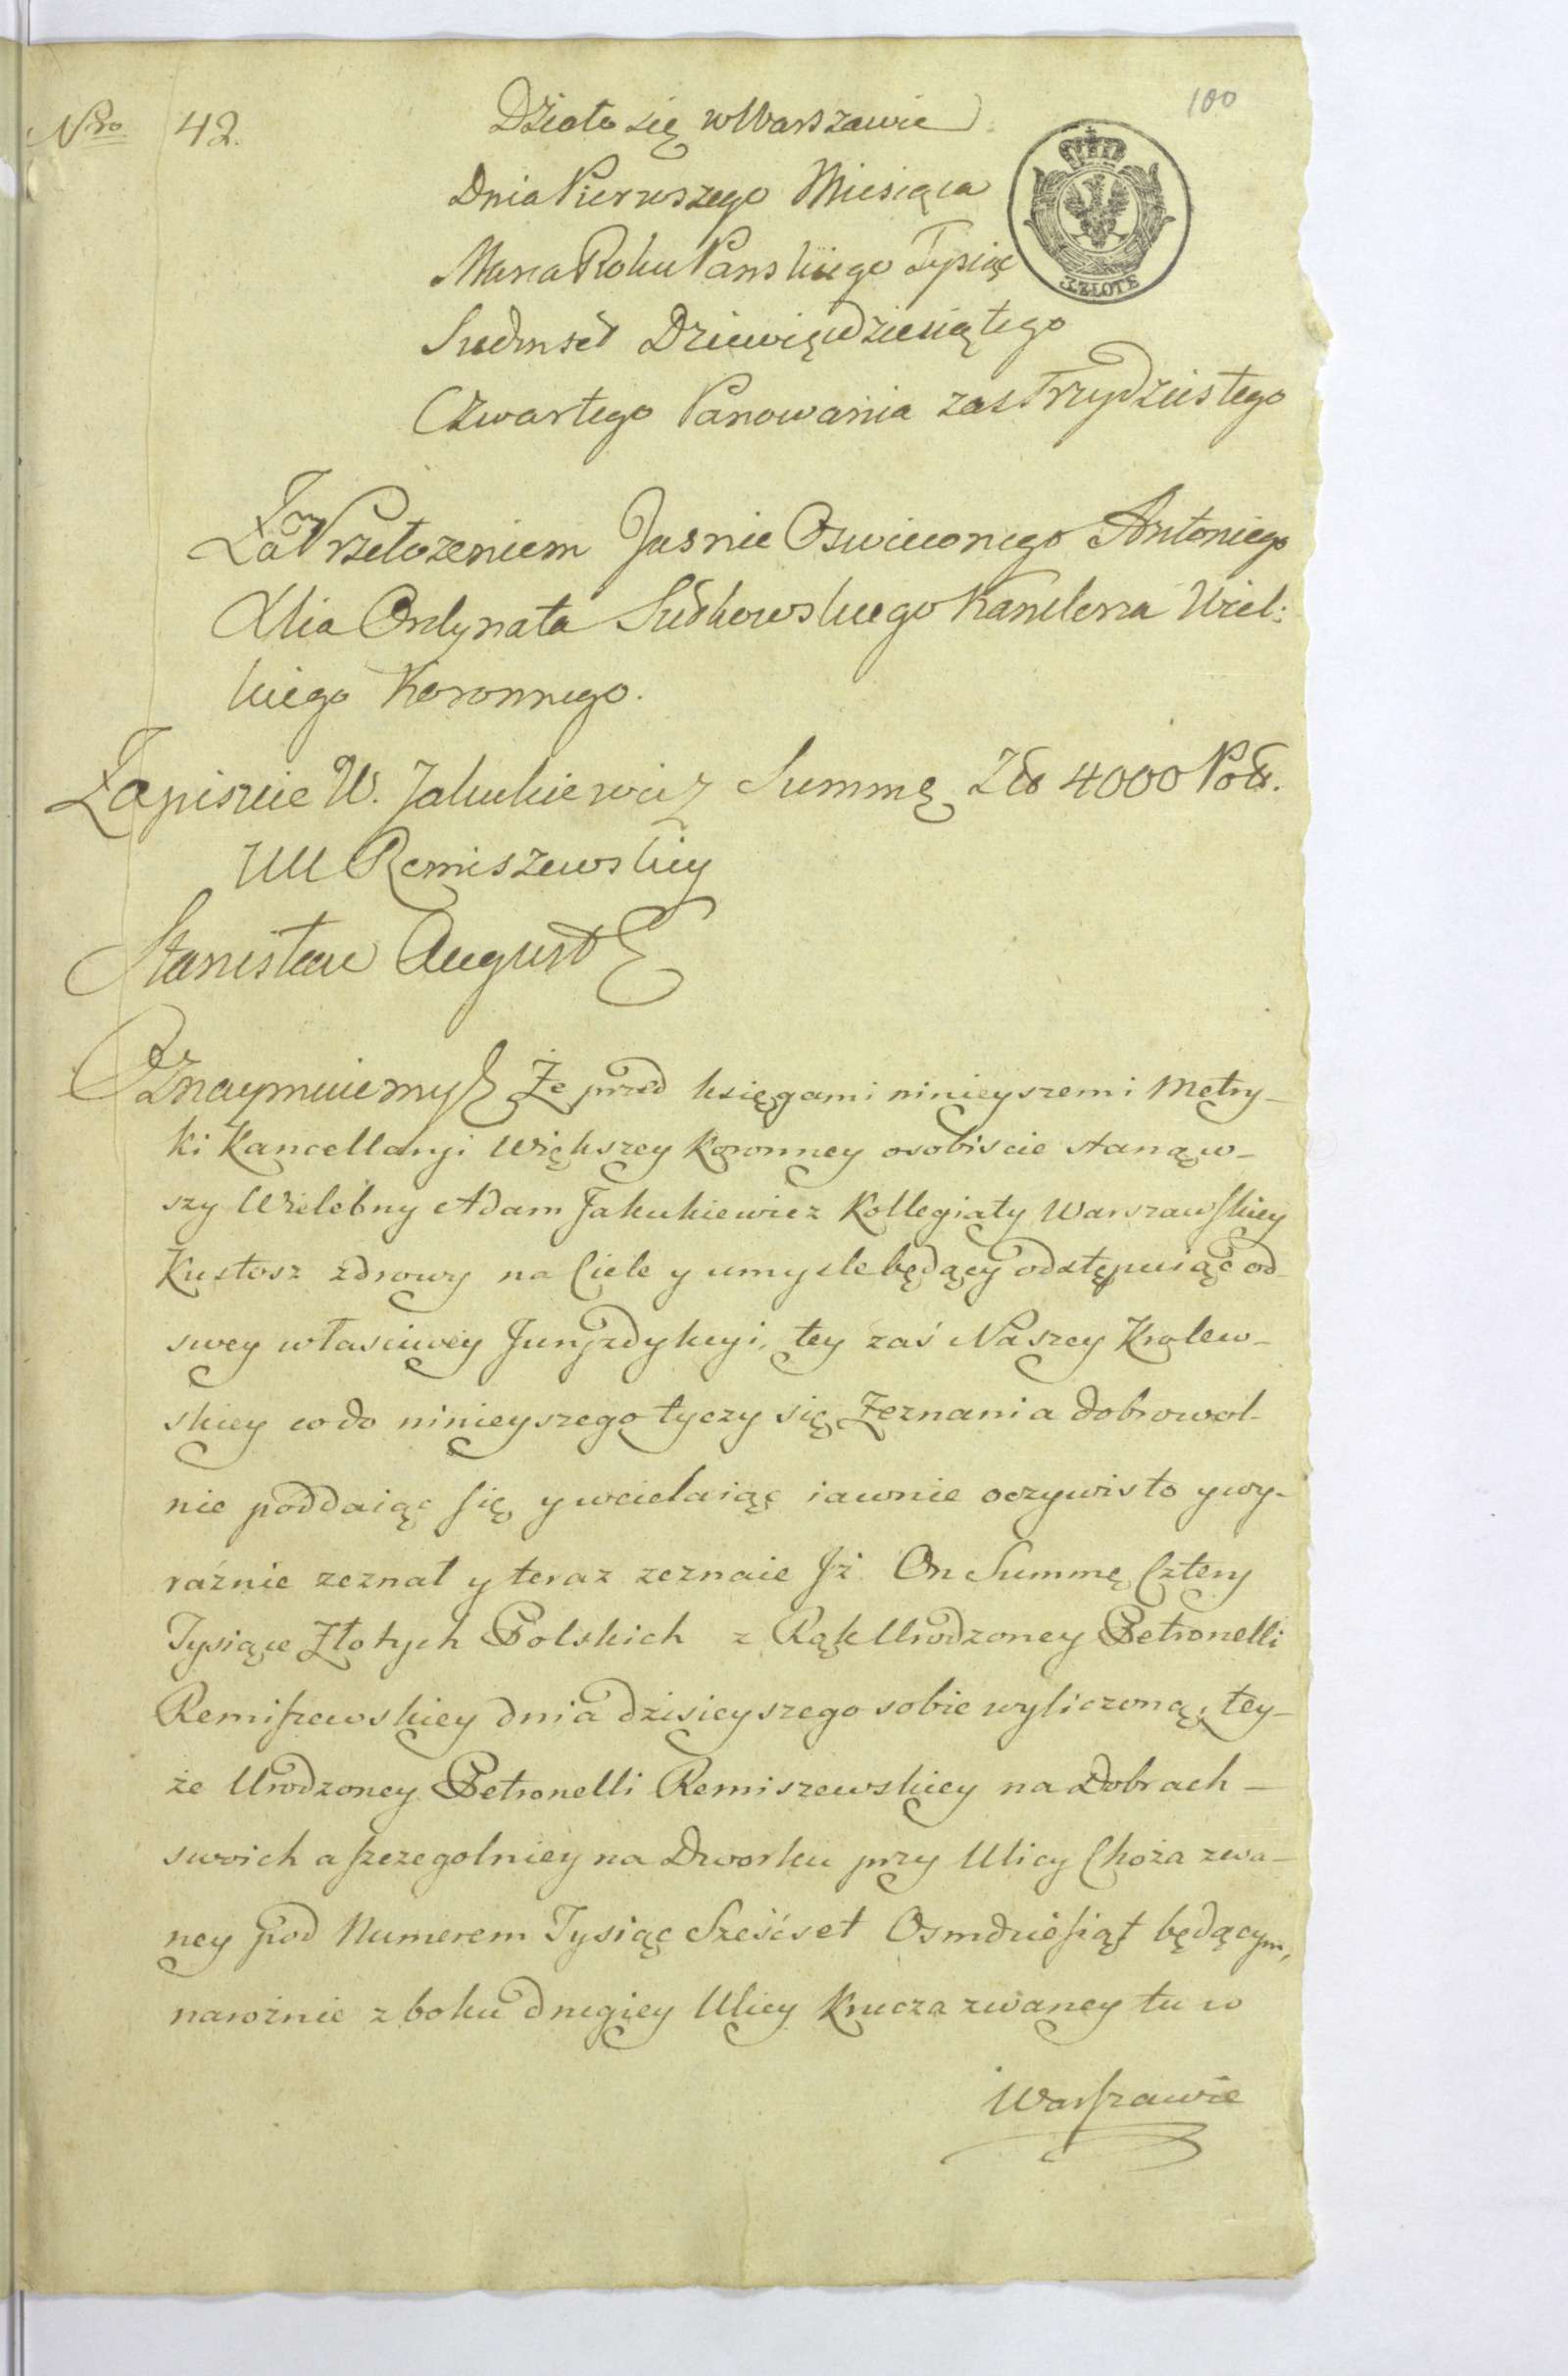 100
Nro 42.
Działo się w Warszawie
Dnia Pierwszego Miesiąca
Marca Roku Panskiego Tysiąc
Siedmset Dziewiędziesiątego
Czwartego Panowania zas Trzydziestego
3. ZŁOTE
Za Przełozeniem Jasnie Oswieconego Antoniego
Xcia Ordynata Sułkowskiego Kanclerza Wiel:
kiego Koronnego.
Zapisuie W. Jakukiewicz Summę Zło 4000 Pol.
Ur Remiszewskiey
Stanisław August
Oznaymuiemy Że przed księgami ninieyszemi Metry-
ki Kancellaryi Większey Koronney osobiscie stanąw-
szy Wielebny Adam Jakukiewicz Kollegiaty Warszawskiey
Kustosz zdrowy na Ciele y umysle będący odstępuiąc od
swey własciwey Juryzdykcyi, tey zaś Naszey Krolew-
skiey co do ninieyszego tyczy się Zeznania dobrowol-
nie poddaiąc się y wcielaiąc iawnie oczywisto y wy-
raźnie zeznał y teraz zeznaie Jż On Summę Cztery
Tysiące Złotych Polskich z Rąk Urodzoney Petronelli
Remiszewskiey dnia dzisieyszego sobie wyliczoną, tey-
że Urodzoney Petronelli Remiszewskiey na Dobrach -
swoich a szczegolniey na Dworku przy Ulicy Choża zwa-
ney pod Numerem Tysiąc Sześćset Osmdziesiąt będącym,
narożnie z boku drugiey Ulicy Krucza zwaney tu w
Warszawie